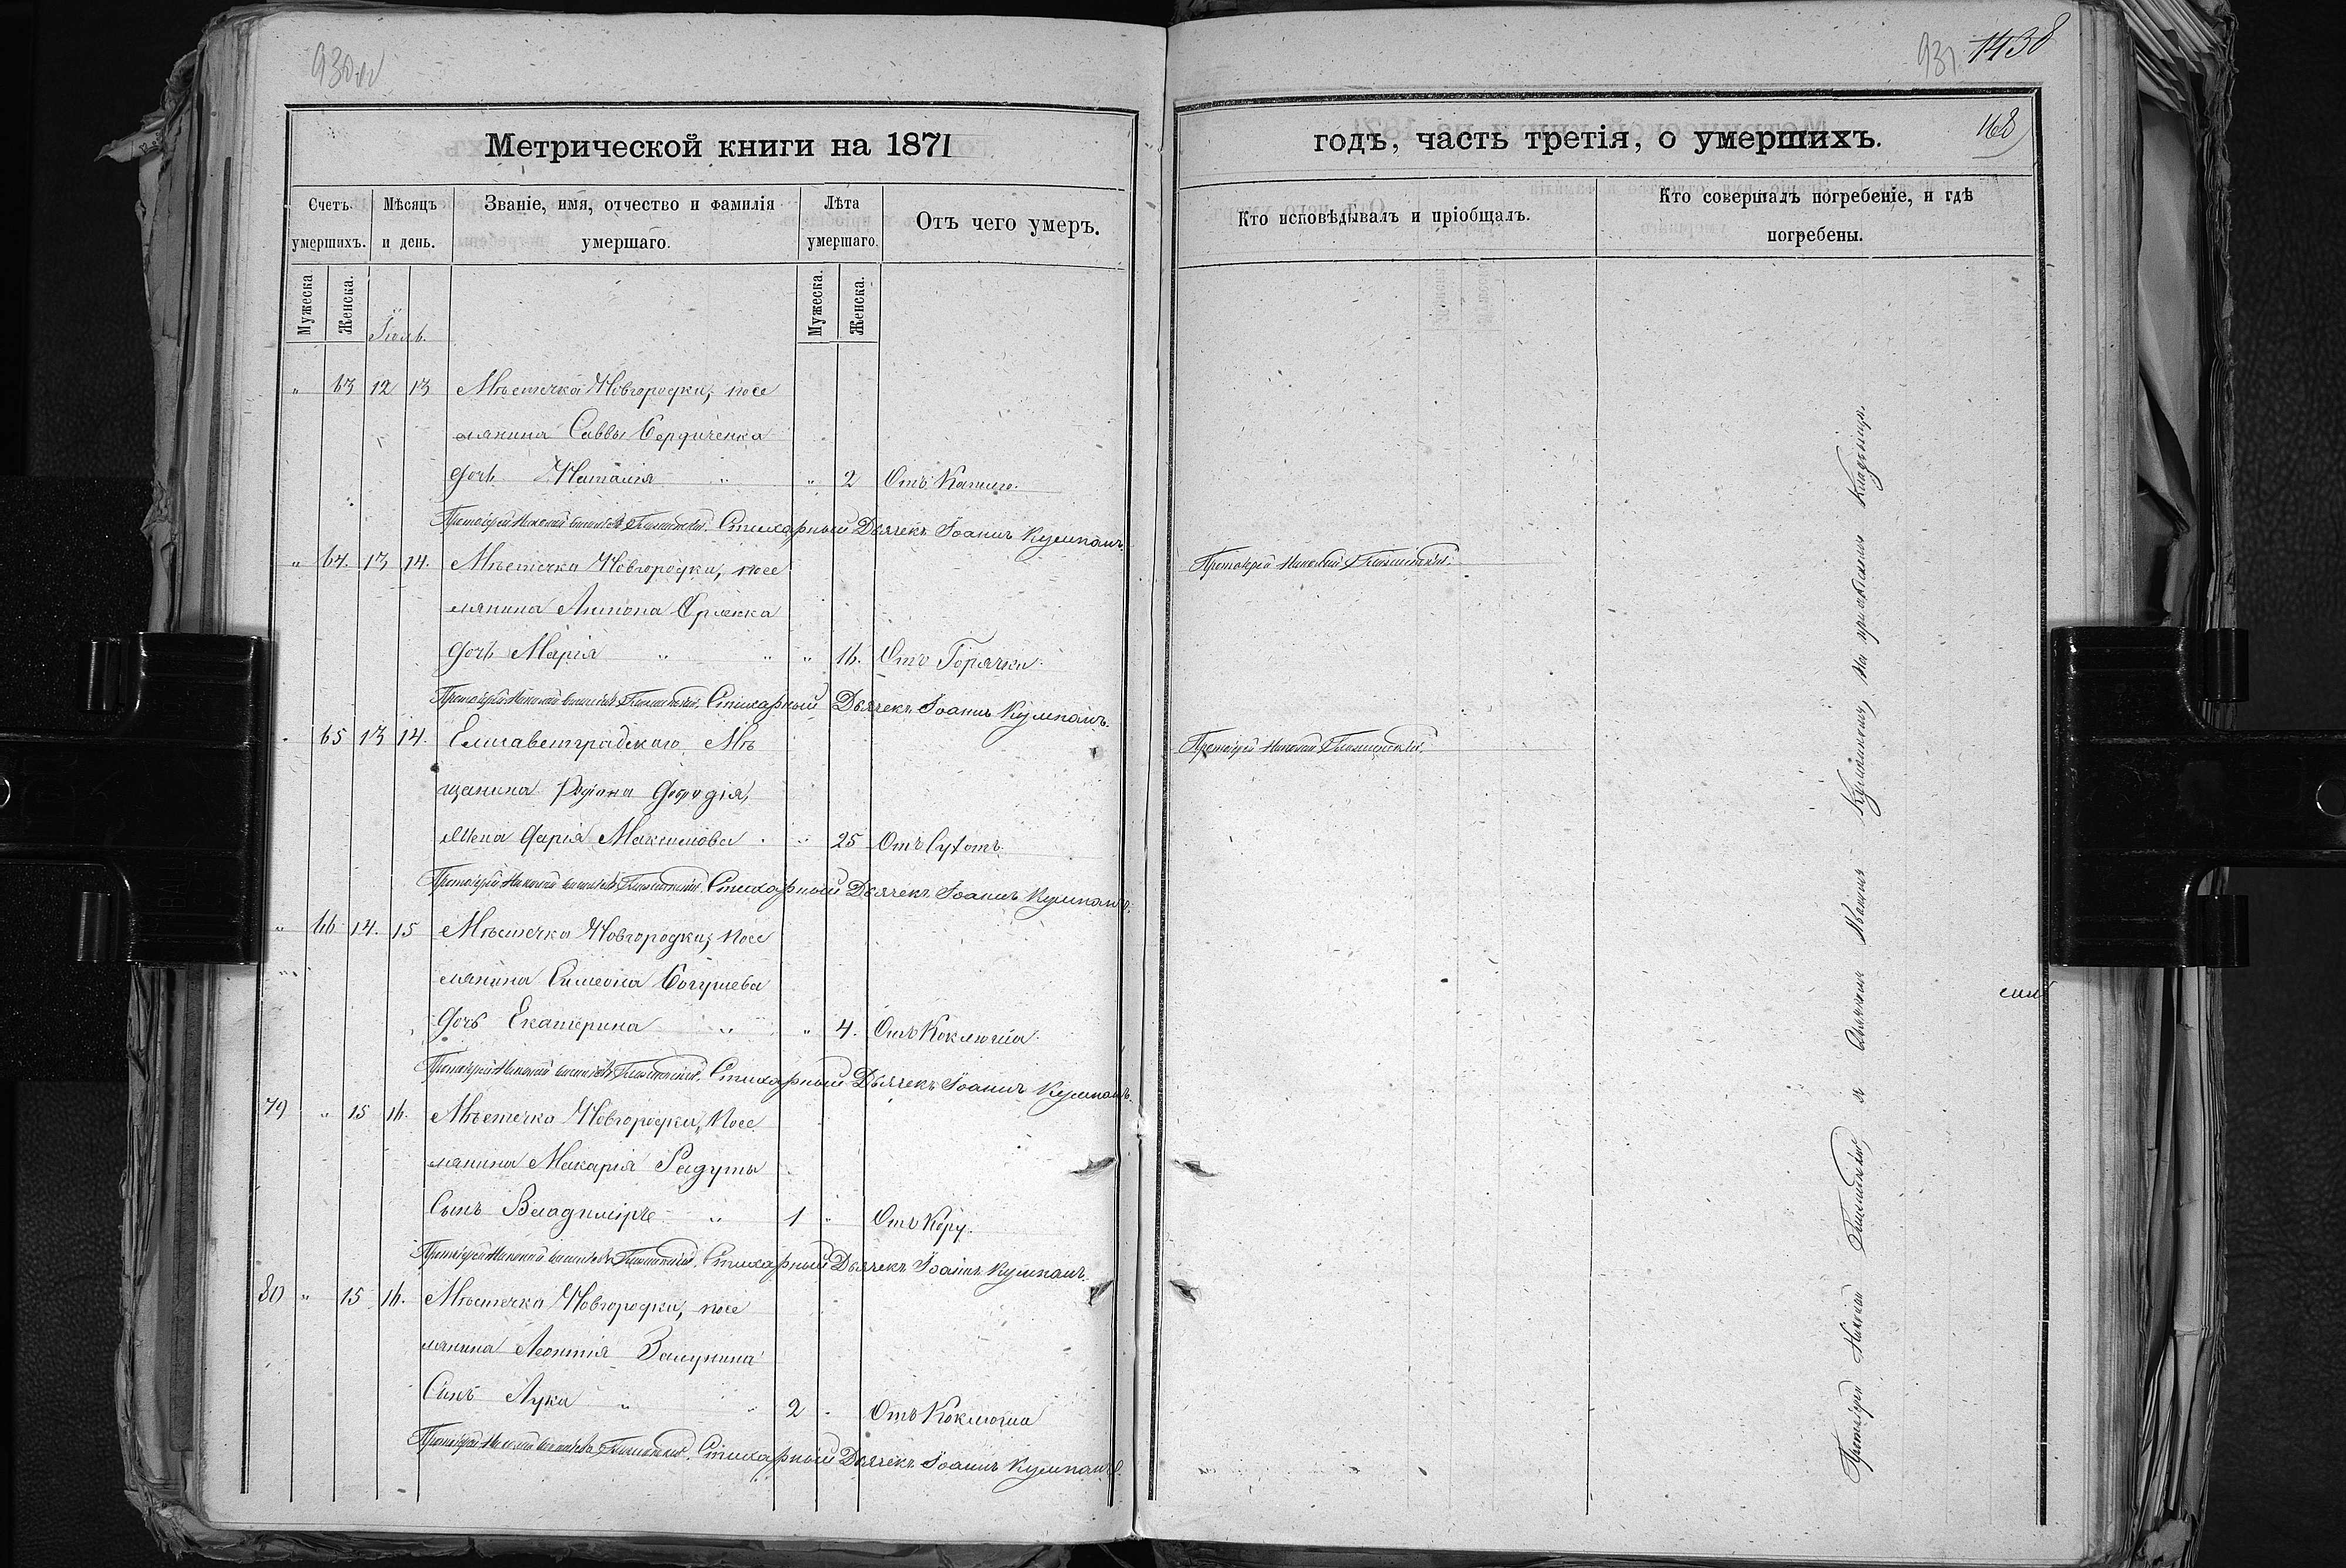 930 об
Метрической книги на 1871
Счетъ умершихъ.
Мѣсяцъ и день.
Званіе, имя, отчество и фамилія умершаго.
Лѣта умершаго.
Отъ чего умеръ.
Мужеска
Женска.
Мужеска.
Женска.
Іюль.
" 63 12 13 Мѣстечка Новгородки, посе
лянина Саввы Бердиченка
дочь Наталія " " 2 Отъ Кашлю.
Протоіерей Николай Стихарный Дьячекъ Іоаннъ Кушканъ.
" 64. 13 14. Мѣстечка Новгородки, посе
лянина Антона Орленка
дочь Марія " " " 16. Отъ Горячки.
Протоіерей Николай Стихарный Дьячекъ Іоаннъ Кушканъ.
65 13 14. Елисаветградскаго Мѣ
щанина Родіона
жена Дарія Максимова " 25 Отъ Сухотъ.
Протоіерей Николай Стихарный Дьячекъ Іоаннъ Кушканъ.
" 66 14. 15 Мѣстечка Новгородки, посе
лянина Симеона Богушева
дочь Екатерина " " 4. Отъ Коклюша.
Протоіерей Николай Стихарный Дьячекъ Іоаннъ Кушканъ.
79 " 15 16. Мѣстечка Новгородки, посе
лянина Макарія Радуты
Сынъ Владиміръ " 1 " Отъ Кору.
Протоіерей Николай Стихарный Дьячекъ Іоаннъ Кушканъ.
80 " 15 16. Мѣстечка Новгородки, посе
лянина Леонтія
Сынъ Лука " " 2 Отъ Коклюша
Протоіерей Николай Стихарный Дьячекъ Іоаннъ Кушканъ.
931 1438
168
годъ, часть третія, о умершихъ.
Кто исповѣдывалъ и пріобщалъ.
Кто совершалъ погребеніе, и гдѣ погребены.
Протоіерей Николай
Протоіерей Николай
Протоіерей Николай и Дьячкомъ Кушканомъ, на приходскомъ Кладбищѣ.